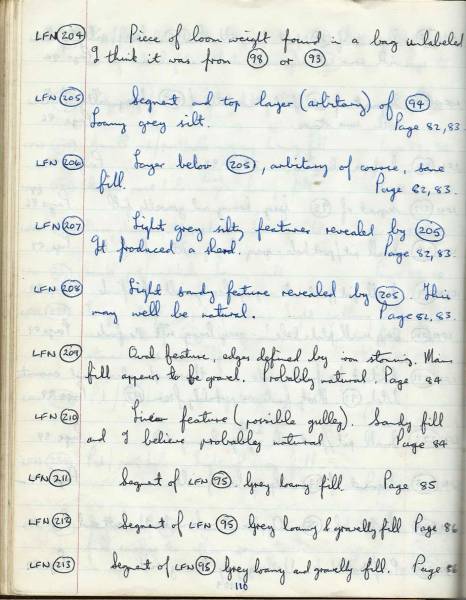 LFN 204 Piece of loom weight found in a bag unlabeled
I think it was from 98 or 93
LFN 205 Segment and top layer (arbitary) of 94
Loamy grey silt. Page 82,83.
LFN 206 Layer below 205, arbitary of course, same
fill. Page 82,83.
LFN 207 Light grey silty features revealed by 205
It produced a sherd. Page 82,83.
LFN 208 Light sandy feature revealed by 205. This
may well be natural. Page 82,83.
LFN 209 Oval feature, edges defined by iron staining. Main
fill appears to be gravel. Probably natural. Page 84
LFN 210 Linear feature (possible gulley). Sandy fill
and I believe probabley natural Page 84
LFN 211 Segment of LFN 95. Grey loamy fill Page 85
LFN 212 Segment of LFN 95 Grey loamy & gravelly fill Page 86
LFN 213 Segment of LFN 95 Grey loamy and gravelly fill. Page 86
110